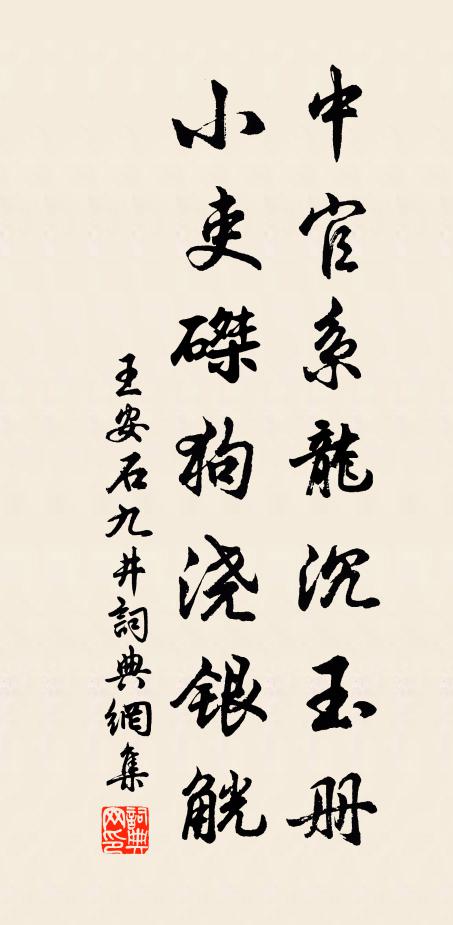 中官系龍沉玉册
小吏磔狗浇銀觥
王安石九井詞典網集
詞典网印